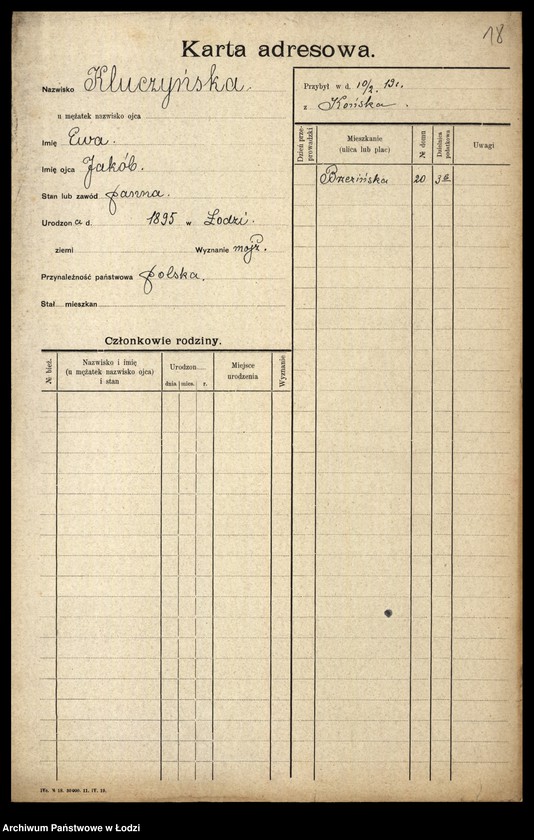 18
Karta adresowa.
Nazwisko Kluczyńska.
u mężatek nazwisko ojca
Imię Ewa.
Imię ojca Jakób.
Stan lub zawód panna.
Urodzona d. 1895 w Łodzi.
ziemi Wyznanie mojż.
Przynależność państwowa polska.
Stał. mieszkan
Przybył w d. 10/2. 191.
z Końska.
Dzień przeprowadzki
Mieszkanie
(ulica lub plac)
№ domu
Dzielnica podatkowa
Uwagi
Brzezińska 20 3
Członkowie rodziny.
№ bież.
Nazwisko i imię
(u mężatek nazwisko ojca)
i stan
Urodzon
dnia mies. r.
Miejsce
urodzenia
Wyznanie
Archiwum Państwowe w Łodzi